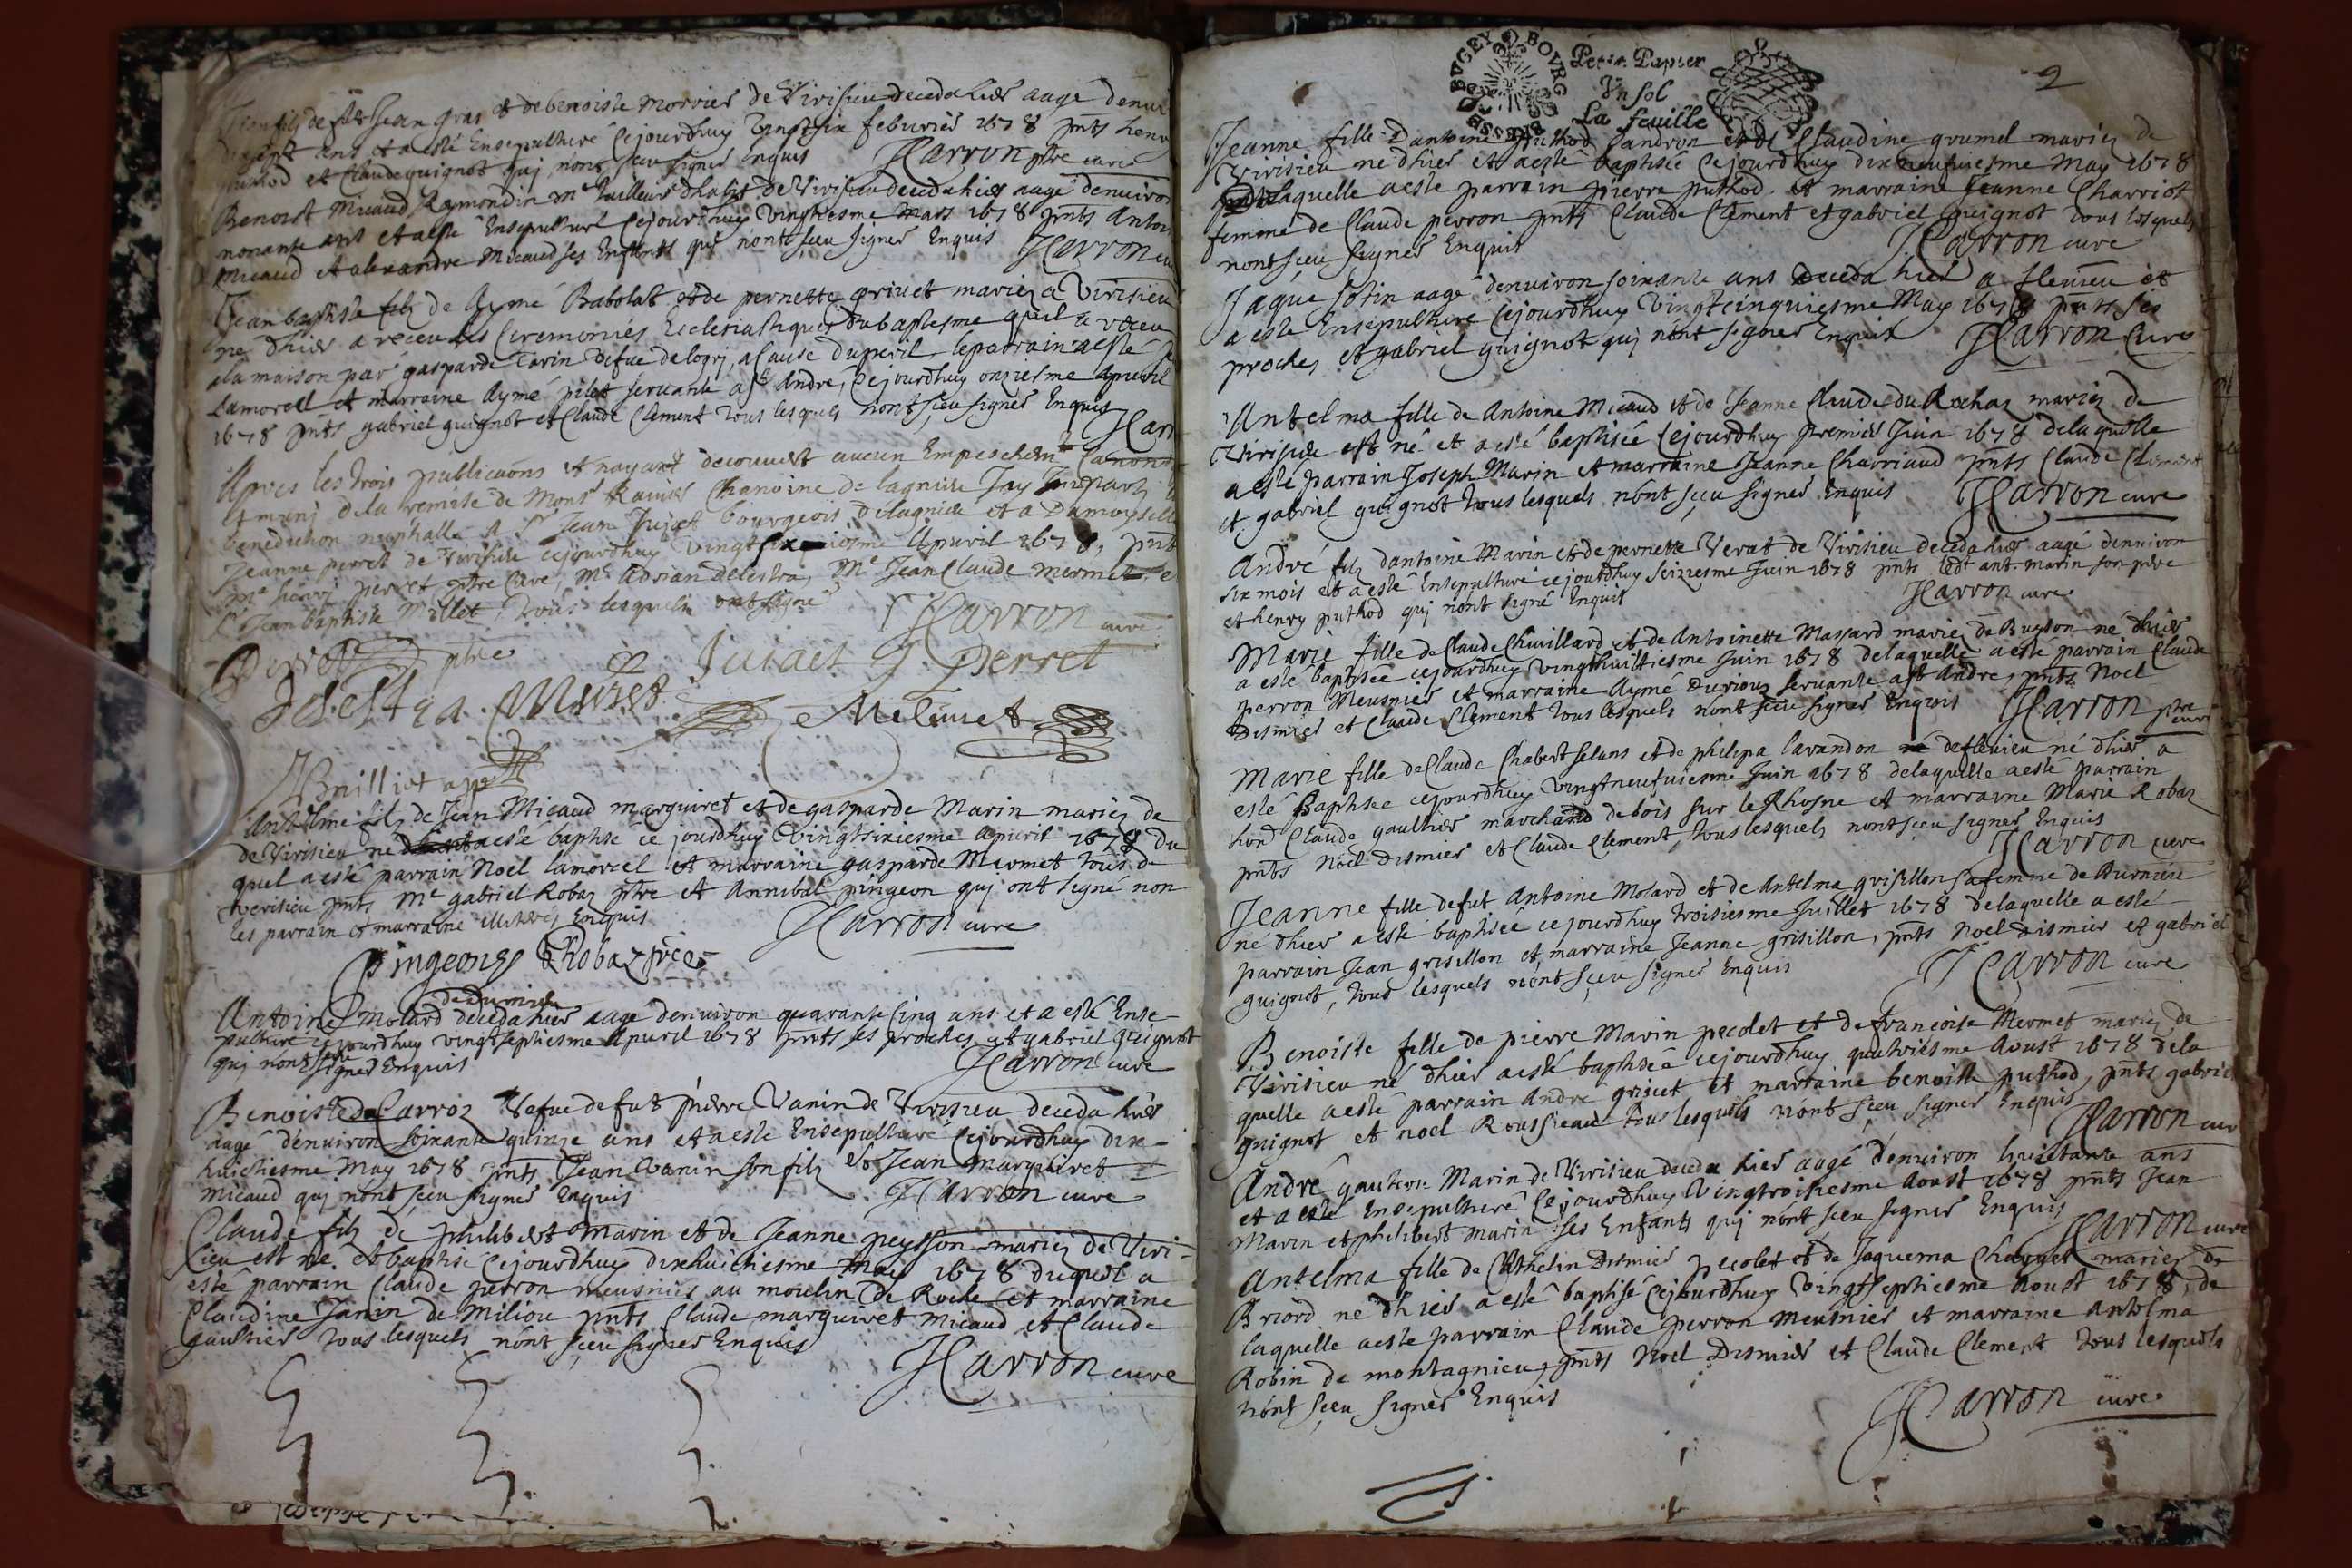 Jean filz de feu Jean gras et de benoiste morrier de Virisieu deceda hier aagé denvi
dixsept ans et a esté Ensepulturé Cejourdhuy Vingtsix feburier 1678 pnts henr
puthod et Claude guignot quj nont sceu signer Enquis JCarron ptre curé
Benoist Micaud Raymondin me tailleur dhabit de Virisieu deceda hier aagé denviron
nonante ans et a esté Ensepulturé Cejourdhuy Vingtiesme Mars 1678 pnts Antoi
Micaud et alexandre Micaud ses Enfants quj nont sceu signer Enquis JCarron cu
Jean baptiste filz de Aymé Babolat et de pernette grivet mariez a Virisieu
né dhier a receu les Ceremonies Ecclesiastiques du baptesme quil a receu
a la maison par gasparde Tarin vefve delogrj, a cause du peril, le parrain a esté
Lamorell et marraine Aymé pilet servante a st André, Cejourdhuy onziesme Apvril
1678 pnts gabriel guignot et Claude Clement tous lesquels nont sceu signer Enquis JCarr
Apres les trois publications et nayant decouvert aucun Empeschemt Canoni
et munj de la remise de Monsr Ranier Chanoine de lagnieu Jay Imparty
benediction nuptialle a sr Jean Jujat bourgeois de lagnieu et a Damoyselle
Jeanne perret de Virisieu cejourdhuy vingt iesme Apuril 1678, pnts
Me henrj perret ptre Curé, Me Adrian delestra, Me Jean Claude mermet e
sr Jean baptiste Millet, tous lesquels ont signé JCarron curé
Perret ptre Jujact J perret
Delestra. Mermet Millet
JBrilliet
Antelme filz de Jean Micaud marguiret et de gasparde Marin mariez de
de Virisieu né a esté baptisé cejourdhuy Vingtsixiesme apuril 1678 du
quel a esté parrain Noel lamorcel et marraine gasparde Mermet tous de
verisieu pnts Me gabriel Robaz ptre et Annibal pingeon quj ont signé non
les parrain et marraine illiterez Enquis JCarron curé
Pingeon GRobaz
de Burnieu
Antoine Molard deceda hier aagé denviron quarante cinq ans et a esté Ense-
pulturé cejourdhuy vingtseptiesme Apuril 1678 pnts ses proches et gabriel guignot
quj nont sceu signer Enquis JCarron curé
Benoiste de Carroz Vefve de fut pierre Vanin de Virisieu deceda hier
aagé denviron soixante quinze ans et a esté Ensepulturé Cejourdhuy dix-
huictiesme May 1678 pnts Jean Vanin son filz et Jean Marguiret
micaud quj nont sceu signer Enquis JCarron curé
Claude filz de philibert Marin et de Jeanne peysson mariez de Viri-
sieu est né et baptisé Cejourdhuy dixhuictiesme May 1678 duquel a
esté parrain Claude perron meusnier au moulin de Roche et marraine
Claudine Janin de Miliou pnts Claude marguiret Micaud et Claude
gaultier tous lesquels nont sceu signer Enquis JCarron curé
BRESSE BVGEY BOVRG
Petit Papier
Vn sol
La feuille
2
Jeanne fille Dantoine puthod Candron et de Claudine grumel mariez de
Virisieu né dhier et a esté baptisée Cejourdhuy dixneufuiesme May 1678
de laquelle a esté parrain pierre puthod et marraine Jeanne Charriot
femme de Claude perron pnts Claude Clement et gabriel guignot tous lesquels
nont sceu signer Enquis JCarron curé
Jaque sotin aagé denviron soixante ans deceda hier a flevieu et
a esté Ensepulturé Cejourdhuy vingtcinquiesme May 1678 pnts ses
proches et gabriel guignot quj nont signer Enquis JCarron Curé
Antelma fille de Antoine Micaud et de Jeanne Claude du Rochaz mariez de
Virisieu est né et a esté baptisée Cejourdhuy premier Juin 1678 de laquelle
a esté parrain Joseph Marin et marraine Jeanne Charriaud pnts Claude Clement
et gabriel guignot tous lesquels nont sceu signer Enquis JCarron curé
André filz dantoine Marin et de pernette Verat de Virisieu deceda hier aagé denviron
six mois et a esté Ensepulturé cejourdhuy seiziesme Juin 1678 pnts ledt ant. marin son pere
et henry puthod quj nont signé Enquis JCarron curé
Marie fille de Claude Chivillard et de Antoinette Massard mariez de Buyson né dhier
a esté baptisée cejourdhuy vingthuictiesme Juin 1678 de laquelle a esté parrain Claude
perron Meusnier et marraine Aymé Durioux servante a st André, pnts Noel
Dismier et Claude Clement tous lesquels nont sceu signer Enquis JCarron ptre curé
Marie fille de Claude Chabert selans et de philipa lavandon de flevieu né dhier a
esté Baptisée cejourdhuy vingtneufuiesme Juin 1678 de laquelle a esté parrain
hon Claude gaultier marchand de bois sur le Rhosne et marraine Marie Robaz
pnts Noel Dismier et Claude Clement, tous lesquels nont sceu signer Enquis
JCarron curé
Jeanne fille de fut Antoine Molard et de Antelma grisillon sa femme de Burnieu
né dhier a esté baptisée cejourdhuy troisiesme Juillet 1678 de laquelle a esté
parrain Jean grisillon et marraine Jeanne grisillon, pnts Noel dismier et gabriel
guignot, tous lesquels nont sceu signer Enquis JCarron curé
Benoiste fille de pierre Marin pecolet et de francoise Mermet mariez de
Virisieu né dhier a esté baptisée cejourdhuy quatriesme Aoust 1678 de la
quelle a esté parrain André grivet et marraine benoiste puthod, pnts gabriel
guignot et noel Roussieau tous lesquels nont sceu signer Enquis JCarron cur
André gauteron Marin de Virisieu deceda hier aagé denviron huictante ans
et a esté Ensepulturé Cejourdhuy Vingtroisiesme Aoust 1678 pnts Jean
Marin et philibert Marin ses Enfants quj nont sceu signer Enquis JCarron curé
Antelma fille de Cathelin Dismier pecolet et de Jaquema Chaynet mariez de
Briord né dhier a esté baptisé Cejourdhuy vingtseptiesme Aoust 1678, de
laquelle a esté parrain Claude perron Meusnier et marraine Antelma
Robin de montagnieu, pnts Noel Dismier et Claude Clement tous lesquels
nont sceu signer Enquis JCarron curé